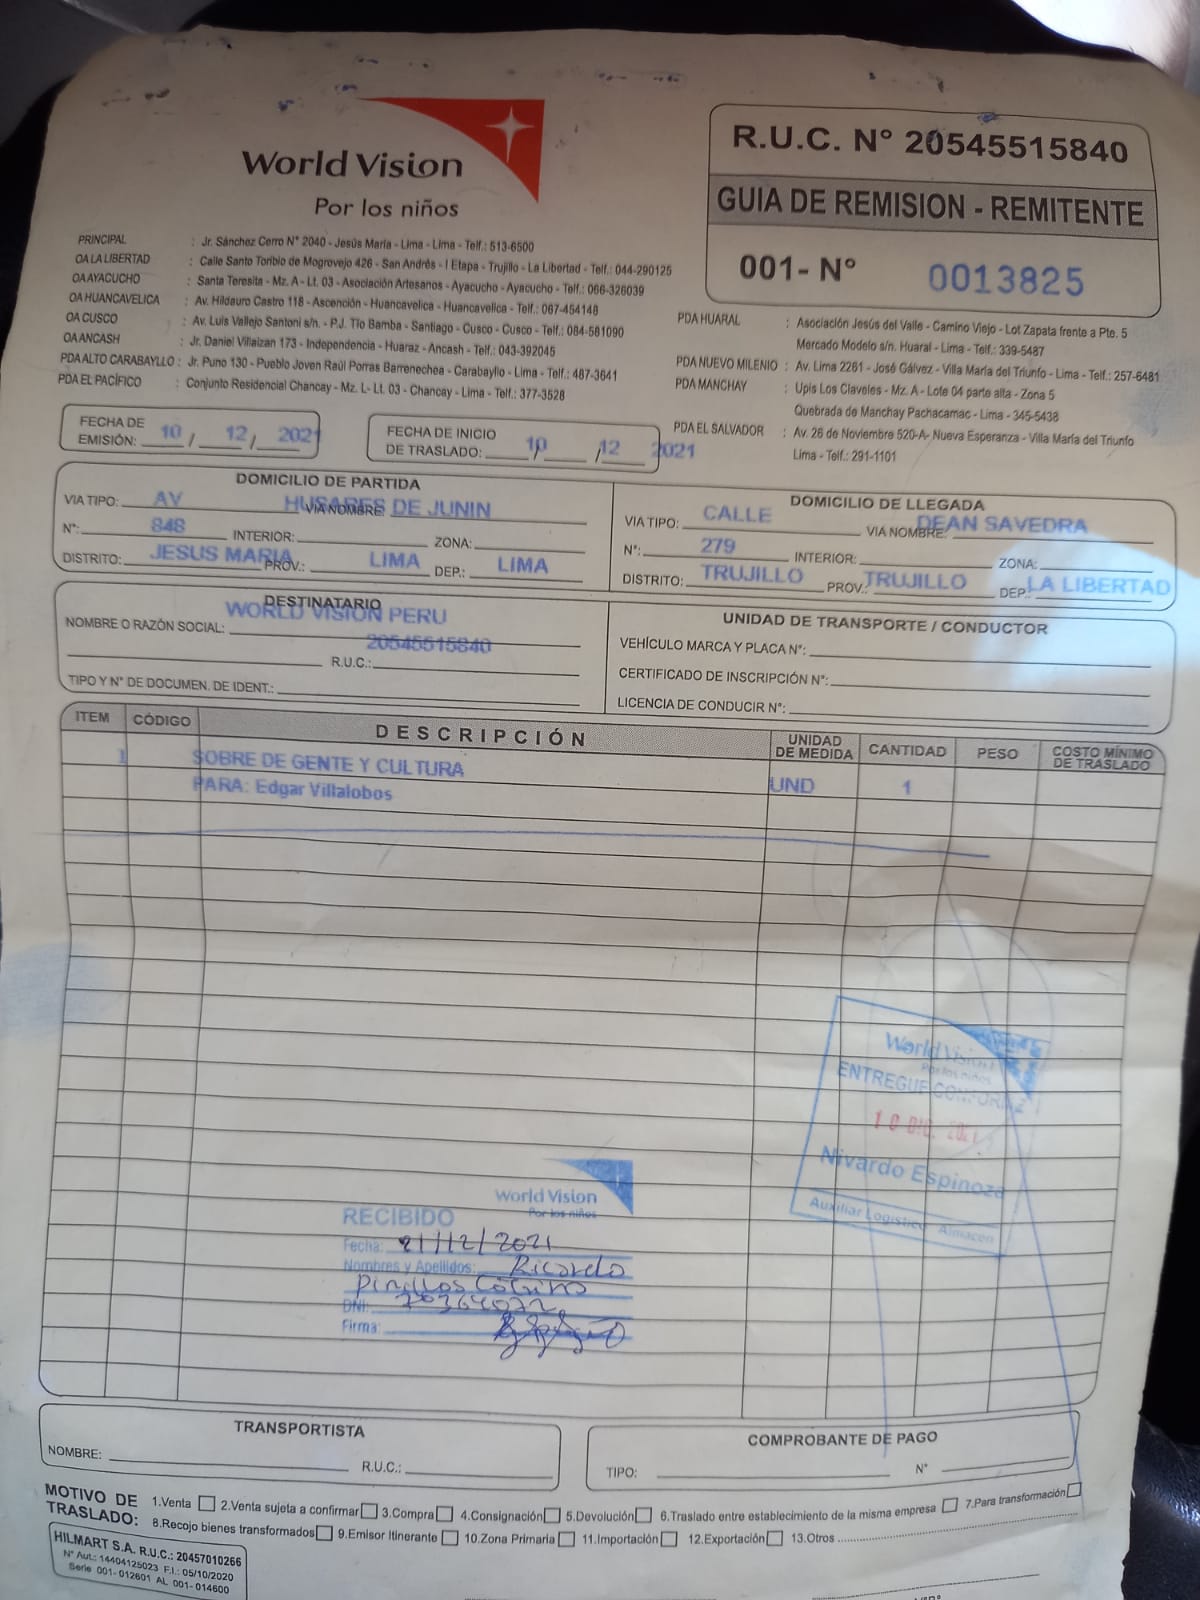 World Vision
Por los niños
R.U.C. N° 20545515840
GUIA DE REMISION - REMITENTE
001- N° 0013825
PRINCIPAL : Jr. Sánchez Cerro N° 2040 - Jesús María - Lima - Lima - Telf.: 513-6500
OA LA LIBERTAD : Calle Santo Toribio de Mogrovejo 426 - San Andrés - I Etapa - Trujillo - La Libertad - Telf.: 044-290125
OA AYACUCHO : Santa Teresita - Mz. A - Lt. 03 - Asociación Artesanos - Ayacucho - Ayacucho - Telf.: 066-326039
OA HUANCAVELICA : Av. Hildauro Castro 118 - Ascención - Huancavelica - Huancavelica - Telf.: 067-454148
OA CUSCO : Av. Luis Vallejo Santoni s/n. - P.J. Tío Bamba - Santiago - Cusco - Cusco - Telf.: 084-581090
OA ANCASH : Jr. Daniel Villaizan 173 - Independencia - Huaraz - Ancash - Telf.: 043-392045
PDA ALTO CARABAYLLO : Jr. Puno 130 - Pueblo Joven Raúl Porras Barrenechea - Carabayllo - Lima - Telf.: 487-3641
PDA EL PACÍFICO : Conjunto Residencial Chancay - Mz. L - Lt. 03 - Chancay - Lima - Telf.: 377-3528
PDA HUARAL : Asociación Jesús del Valle - Camino Viejo - Lot Zapata frente a Pte. 5
Mercado Modelo s/n. Huaral - Lima - Telf.: 339-5487
PDA NUEVO MILENIO : Av. Lima 2261 - José Gálvez - Villa María del Triunfo - Lima - Telf.: 257-6481
PDA MANCHAY : Upis Los Claveles - Mz. A - Lote 04 parte alta - Zona 5
Quebrada de Manchay Pachacamac - Lima - 345-5438
PDA EL SALVADOR : Av. 26 de Noviembre 520-A- Nueva Esperanza - Villa María del Triunfo
Lima - Telf.: 291-1101
FECHA DE EMISIÓN: 10 / 12 / 2021
FECHA DE INICIO DE TRASLADO: 10 / 12 2021
DOMICILIO DE PARTIDA
VIA TIPO: AV VIA NOMBRE: HUSARES DE JUNIN
N°: 848 INTERIOR: ZONA:
DISTRITO: JESUS MARIA PROV.: LIMA DEP.: LIMA
DOMICILIO DE LLEGADA
VIA TIPO: CALLE VIA NOMBRE: DEAN SAVEDRA
N°: 279 INTERIOR: ZONA:
DISTRITO: TRUJILLO PROV.: TRUJILLO DEP.: LA LIBERTAD
DESTINATARIO
WORLD VISION PERU
NOMBRE O RAZÓN SOCIAL:
20545515840
R.U.C.:
TIPO Y N° DE DOCUMEN. DE IDENT.:
UNIDAD DE TRANSPORTE / CONDUCTOR
VEHÍCULO MARCA Y PLACA N°:
CERTIFICADO DE INSCRIPCIÓN N°:
LICENCIA DE CONDUCIR N°:
ITEM CÓDIGO DESCRIPCIÓN UNIDAD DE MEDIDA CANTIDAD PESO COSTO MÍNIMO DE TRASLADO
1 SOBRE DE GENTE Y CULTURA
PARA: Edgar Villalobos UND 1
World Vision
Por los niños
ENTREGUE CONFORME
10 DIC. 2021
Nivardo Espinoza
Auxiliar Logistico Almacén
World Vision
Por los niños
RECIBIDO
Fecha: 21/12/2021
Nombres y Apellidos: Ricardo
Pinillos
DNI:
Firma:
TRANSPORTISTA
NOMBRE: R.U.C.:
COMPROBANTE DE PAGO
TIPO: N°
MOTIVO DE TRASLADO: 1.Venta 2.Venta sujeta a confirmar 3.Compra 4.Consignación 5.Devolución 6.Traslado entre establecimiento de la misma empresa 7.Para transformación
8.Recojo bienes transformados 9.Emisor Itinerante 10.Zona Primaria 11.Importación 12.Exportación 13.Otros
HILMART S.A. R.U.C.: 20457010266
N° Aut.: 14404125023 F.I.: 05/10/2020
Serie 001- 012601 AL 001- 014600